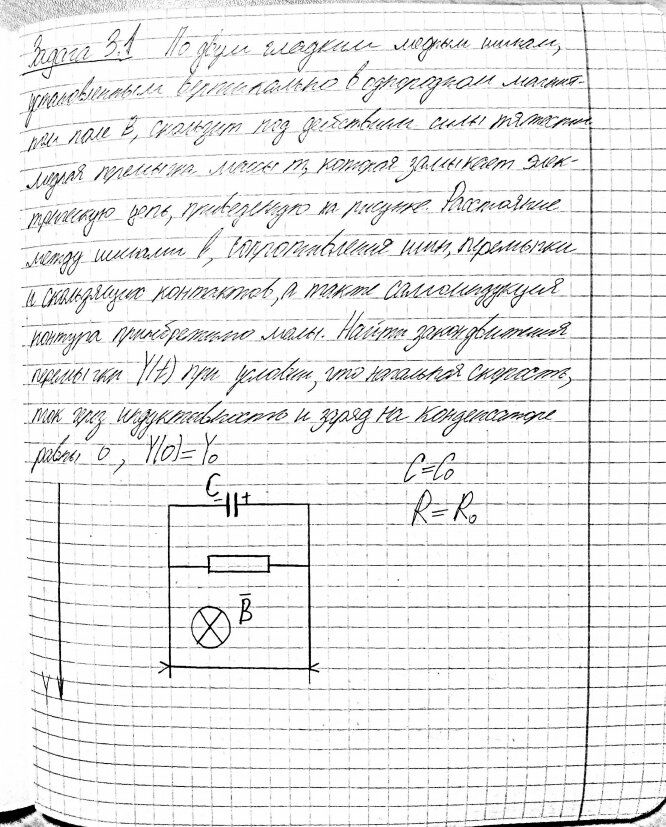 Задача 3.1 По двум гладким медным шинам,
установленным вертикально в однородном магнит-
ном поле B, скользит под действием силы тяжести
медная перемычка массы m, которая замыкает элек-
трическую цепь, приведенную на рисунке. Расстояние
между шинами l, сопротивления шин, перемычки
и скользящих контактов, а также самоиндукция
контура пренебрежимо малы. Найти закон движения
перемычки Y(t) при условии, что начальная скорость,
ток чрез индуктивность и заряд на конденсаторе
равны 0, Y(0)=Y₀
C=C₀
R=R₀
C
- +
B̅
Y